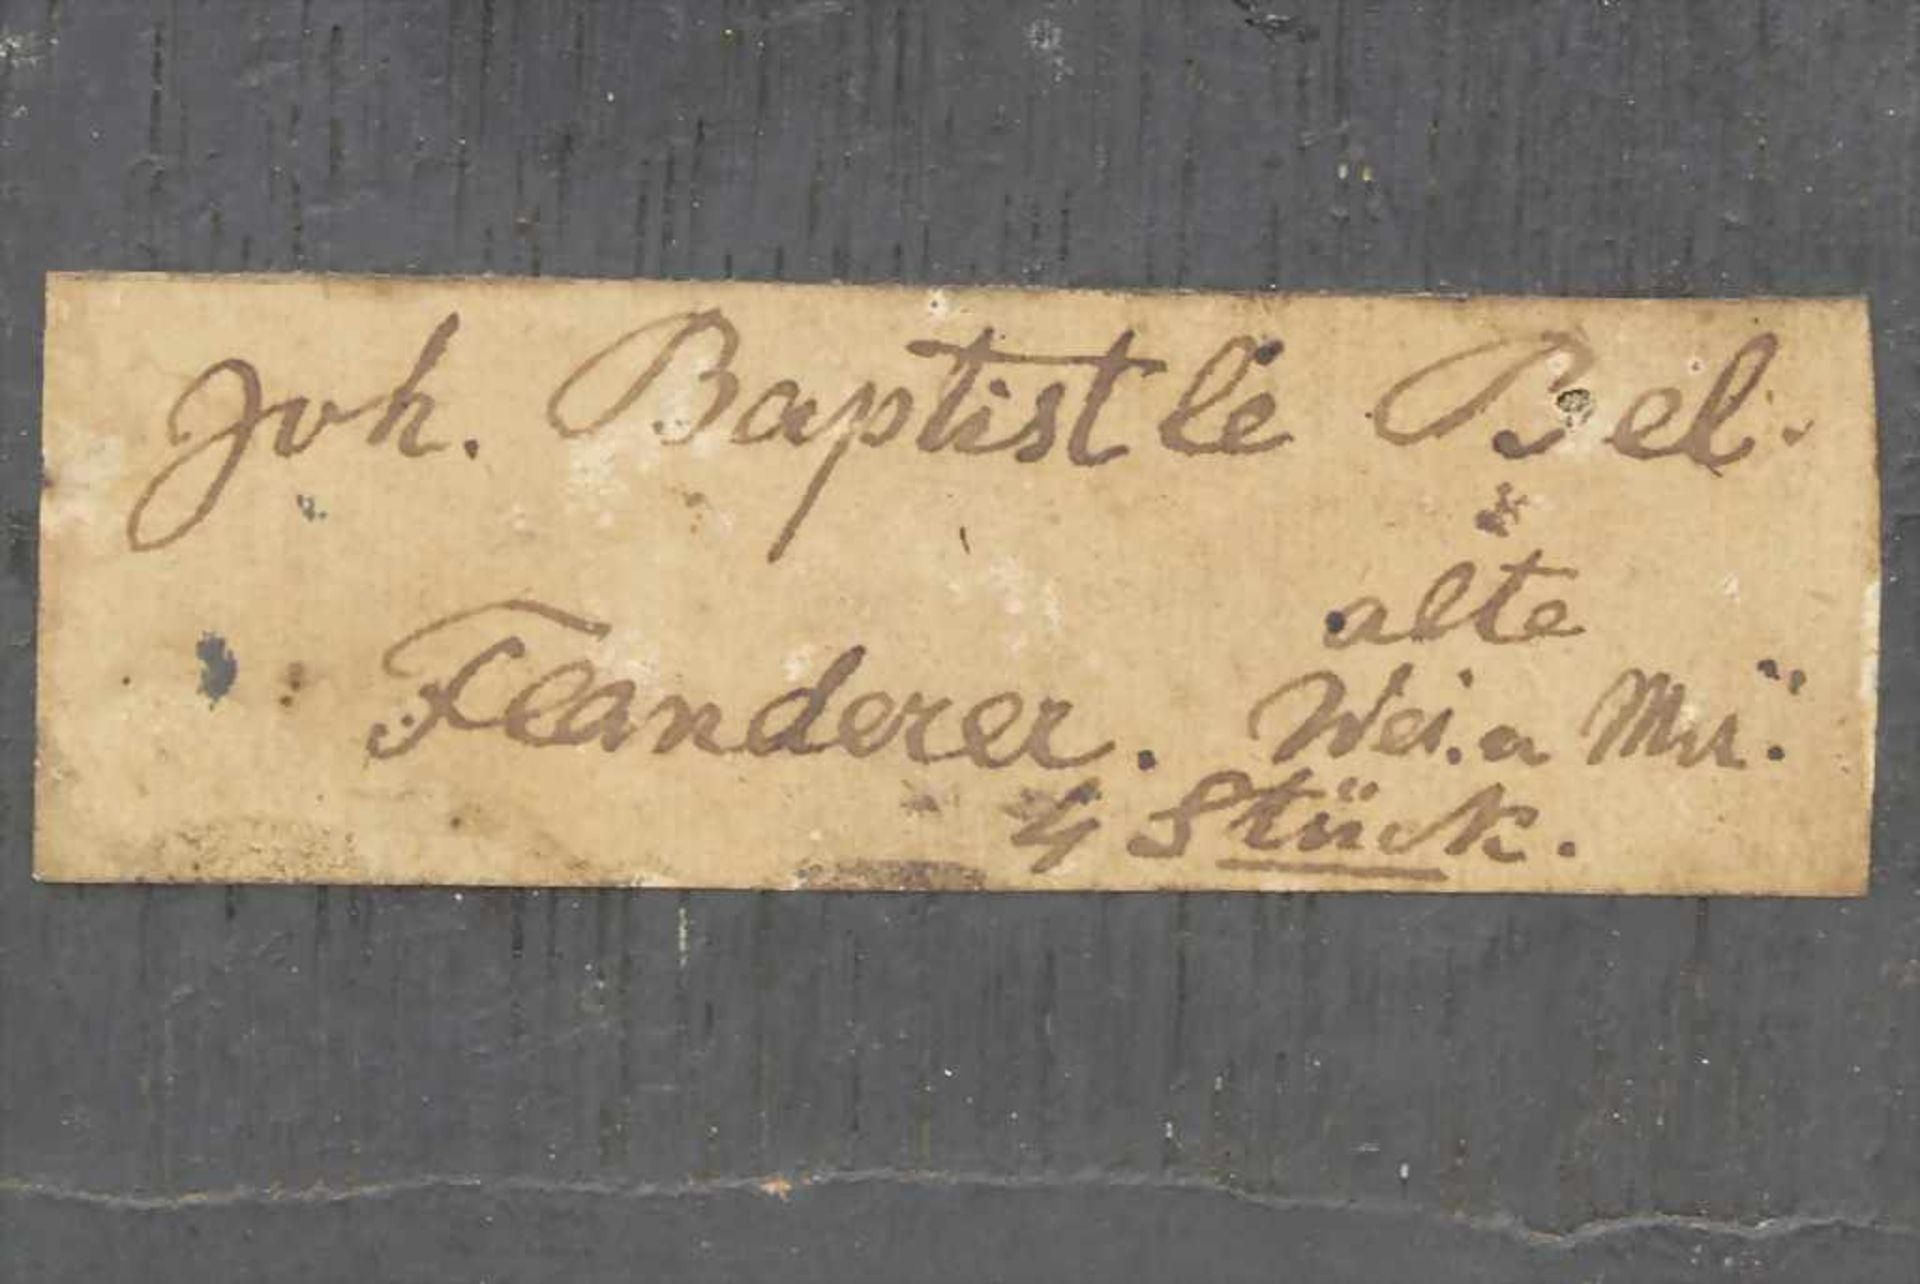 Joh. Baptist le Bel.
alte
Flanderer. Wei. a Mü.
4 Stück.